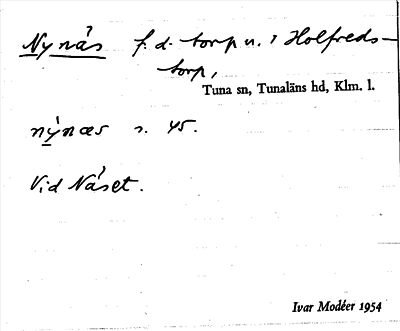 Nynäs f. d. torp u. Holfreds-
torp,
Tuna sn, Tunaläns hd, Klm. l.
nỳnæs s. 45.
Vid Näset.
Ivar Modéer 1954